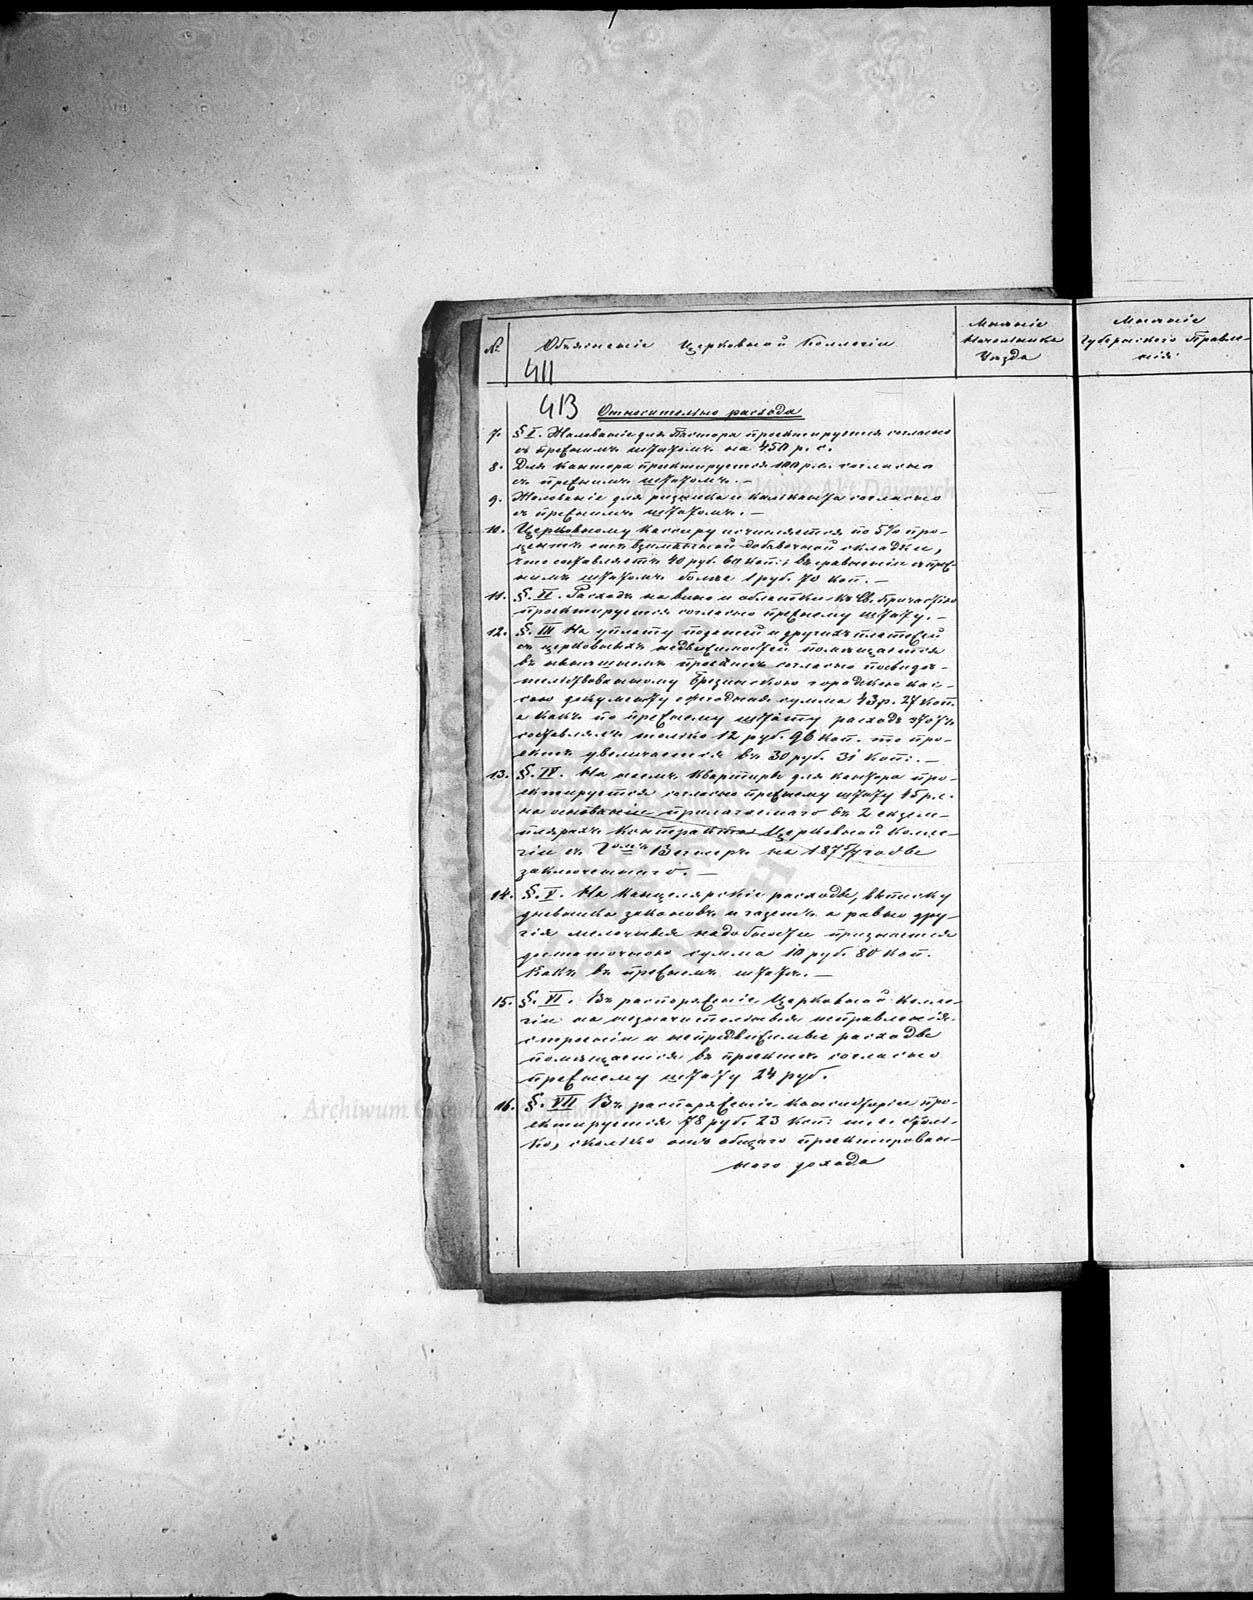 №
Объясненіе Церковной Коллегіи
Мнѣніе
Начальника
Уѣзда
Мнѣніе
Губернскаго Правле-
нія
411
413 Относительно расхода
7. § I. Жалованіе для Пастора проектируется согласно
съ прежнимъ штатомъ на 450 р. с.
8. Для Кантора проектируется 100 р.с. согласно
съ прежнимъ штатомъ. —
9. Жалованіе для ризника и калканта согласно
съ прежнимъ штатомъ. —
10. Церковному кассиру исчисляется по 5% про-
центъ отъ взиманной добавочной складки,
что составляетъ 40 руб. 60 коп: въ сравненіи съ преж-
нимъ штатомъ болѣе 1 руб. 70 коп. —
11. §. II. Расходъ на вино и облатки къ Св. Причастію
проектируется согласно прежнему штату. —
12. §. III На уплату податей и другихъ платежей
съ церковныхъ недвижимостей помѣщается
въ нынѣшнемъ проектѣ согласно посвидѣ-
тельствованному Брезинскою городскою кас-
сою документу ежегодная сумма 43 р. 27 коп.
а какъ по прежнему штату расходъ этотъ
составлялъ только 12 руб. 96 коп. то про-
ектъ увеличается въ 30 руб. 31 коп: —
13. §. IV. На наемъ квартиры для кантора про-
ектируется согласно прежнему штату 45 р.с.
на основаніи прилагаемаго въ 2 экзем-
плярахъ контракта Церковной Колле-
гіи съ Гомъ на годы
заключеннаго. —
14. §. V. На канцелярскіе расходы, выписку
дневника законовъ и газетъ а равно дру-
гія мелочныя надобности признается
достаточною сумма 10 руб. 80 коп.
какъ въ прежнемъ штатѣ. —
15. §. VI. Въ распоряженіе Церковной Колле-
гіи на незначительныя исправленія
строеніи и непредвидимые расходы
помѣщается въ проектѣ согласно
прежнему штату 24 руб.
16. §. VII Въ распоряженіе консисторіи про-
ектируется 78 руб. 23 коп: т.е. столь-
ко, сколько отъ общаго проектирован-
наго дохода
Archiwum Główne Akt Dawnych
Archiwum Główne Akt Dawnych